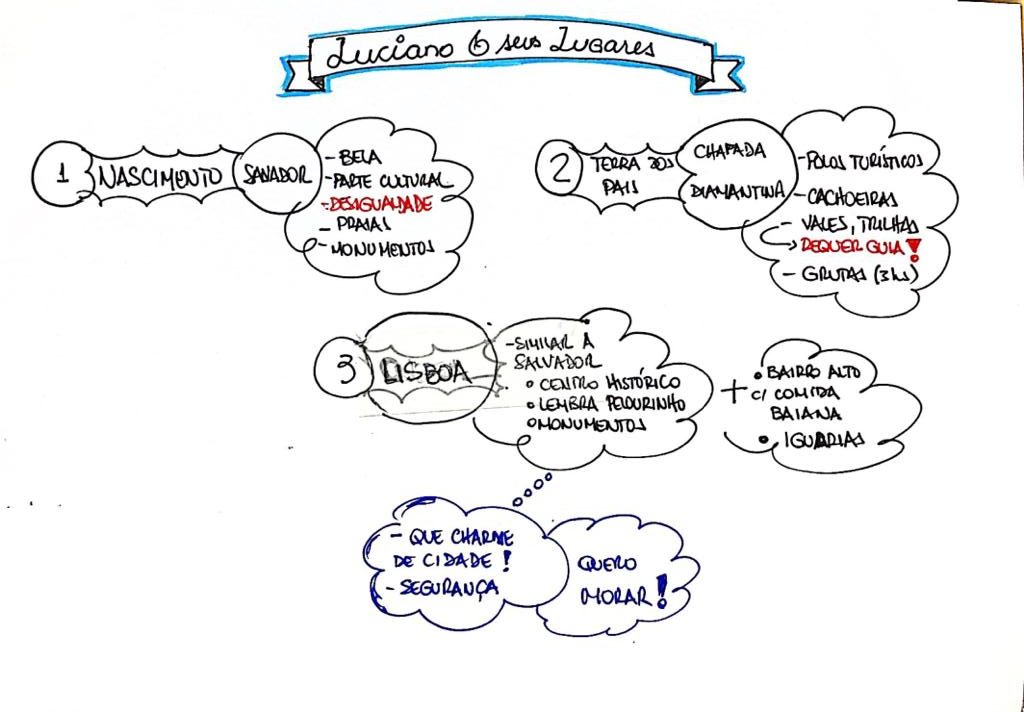 Luciano & seus Lugares
1 NASCIMENTO SAVADOR
- BELA
- PARTE CULTURAL
- DESIGUALDADE
- PRAIAS
- MONUMENTOS
2 TERRA DOS PAIS
CHAPADA
DIAMANTINA
- POLOS TURÍSTICOS
- CACHOEIRAS
- VALES, TRILHAS
→ REQUER GUIA!
- GRUTAS (3hs)
3 LISBOA
- SIMILAR À
SALVADOR
• CENTRO HISTÓRICO
• LEMBRA PELOURINHO
• MONUMENTOS
+
• BAIRRO ALTO
C/ COMIDA
BAIANA
• IGUARIAS
- QUE CHARME
DE CIDADE!
- SEGURANÇA
QUERO
MORAR!